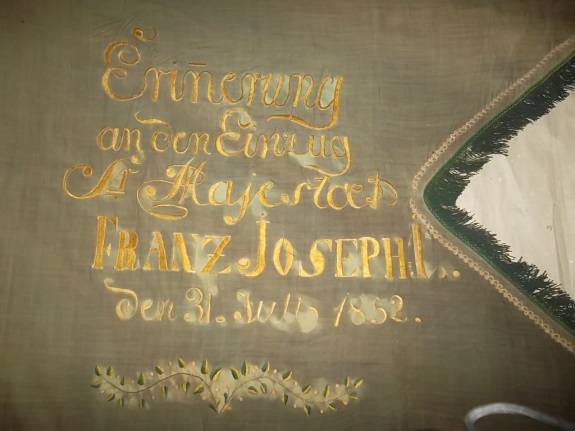 Erin̄erung
an den Einzug
Sr Majestæt
FRANZ JOSEPH I..
den 31. July 1852.